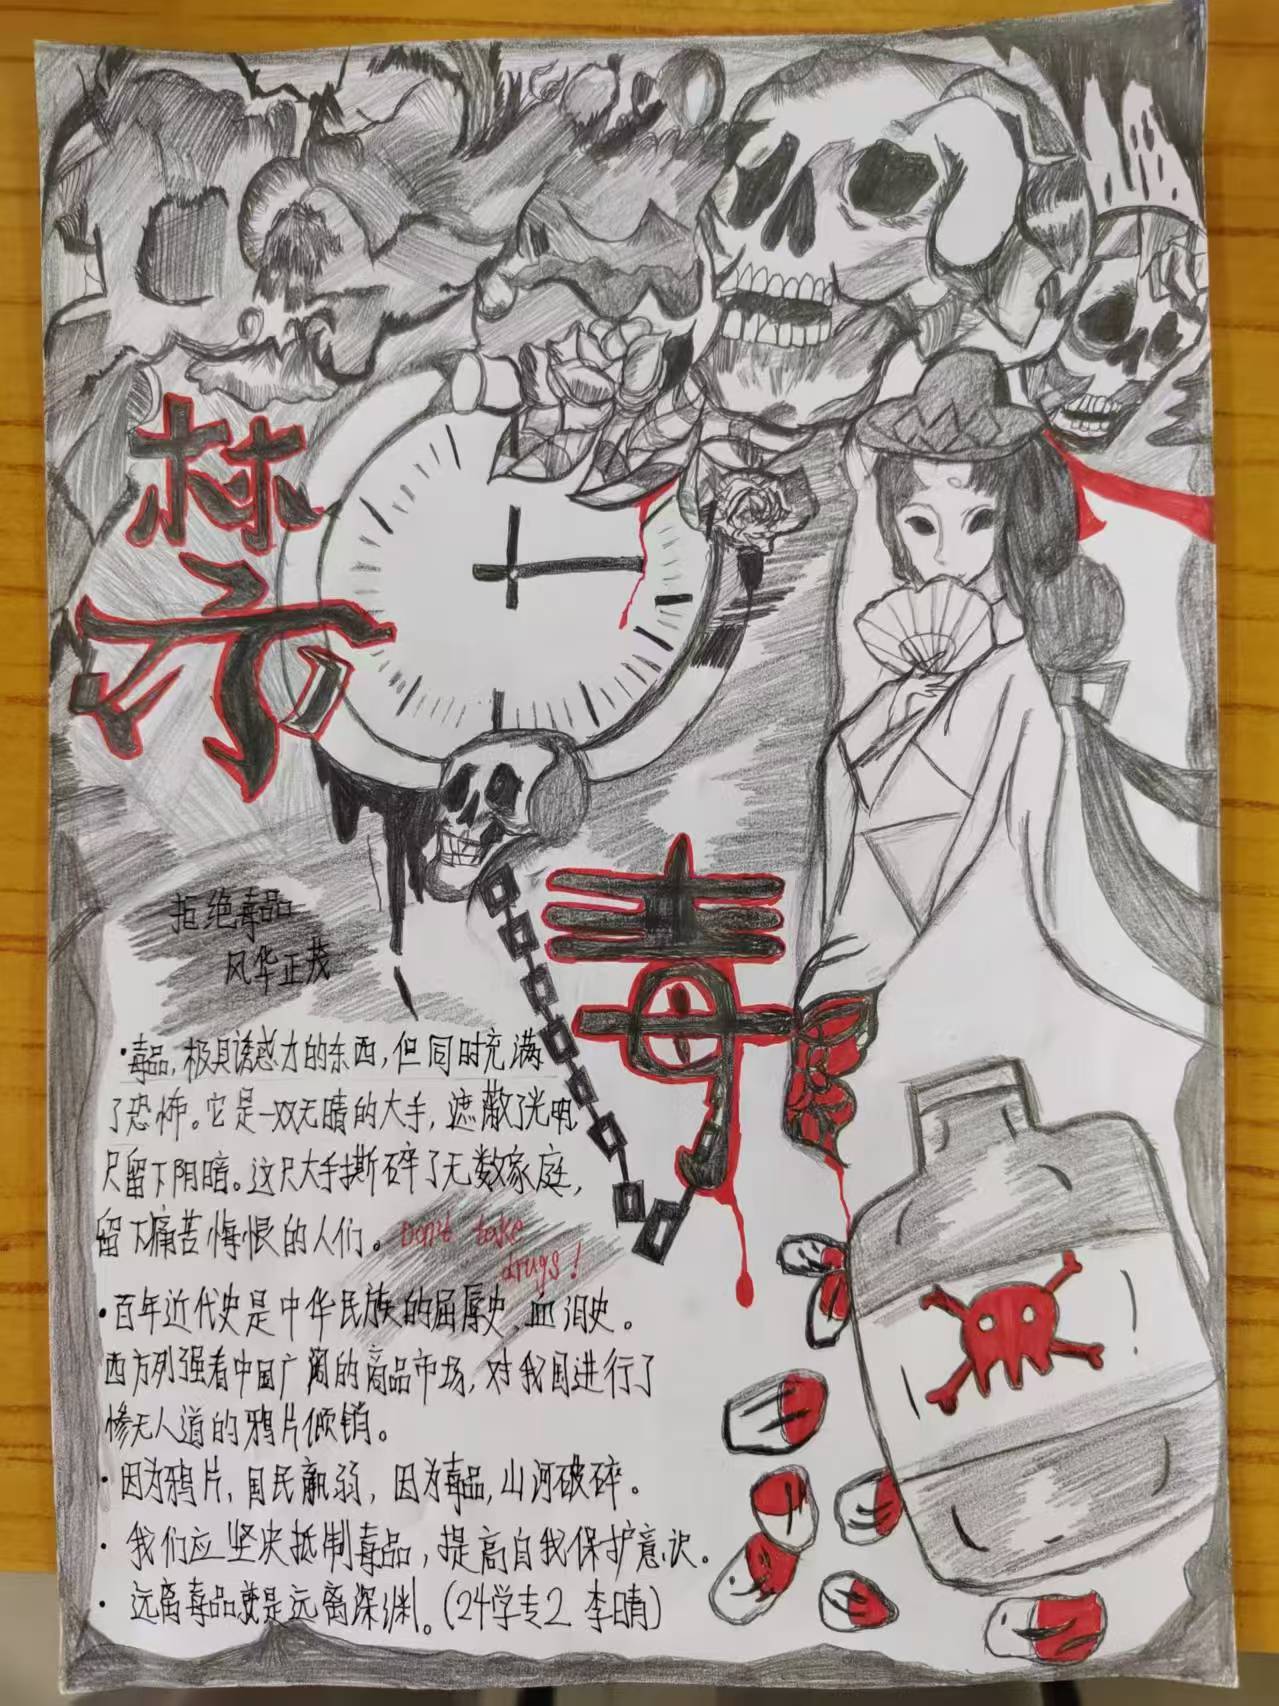 禁
毒
拒绝毒品
风华正茂
·毒品,极具诱惑力的东西,但同时充满
了恐怖。它是一双无晴的大手,遮蔽了光明,
只留下阴暗。这只大手撕碎了无数家庭,
留下痛苦悔恨的人们。Don't take
drugs!
·百年近代史是中华民族的屈辱史、血泪史。
西方列强看中国广阔的商品市场,对我国进行了
惨无人道的鸦片倾销。
·因为鸦片,国民羸弱,因为毒品,山河破碎。
·我们应坚决抵制毒品,提高自我保护意识。
·远离毒品就是远离深渊。(24学专2 李晴)